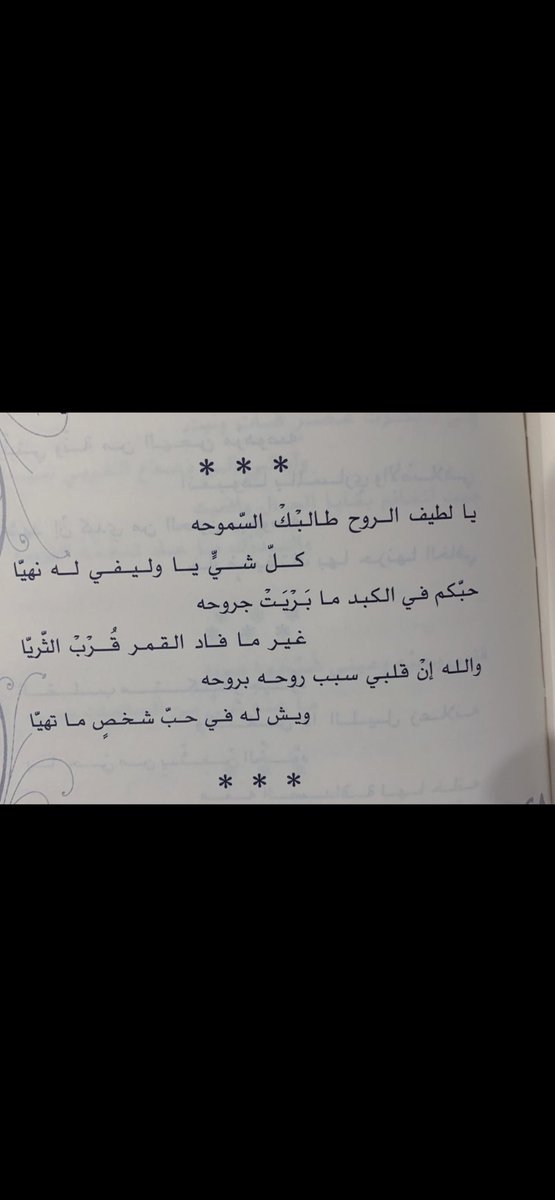 * * *
يا لطيف الروح طالبْكْ السّموحه
كلّ شيٍّ يا وليفي له نهيّا
حبّكم في الكبد ما بَرْيَتْ جروحه
غير ما فاد القمر قُرْبْ الثّريّا
والله إنْ قلبي سبب روحه بروحه
ويش له في حبّ شخصٍ ما تهيّا
* * *